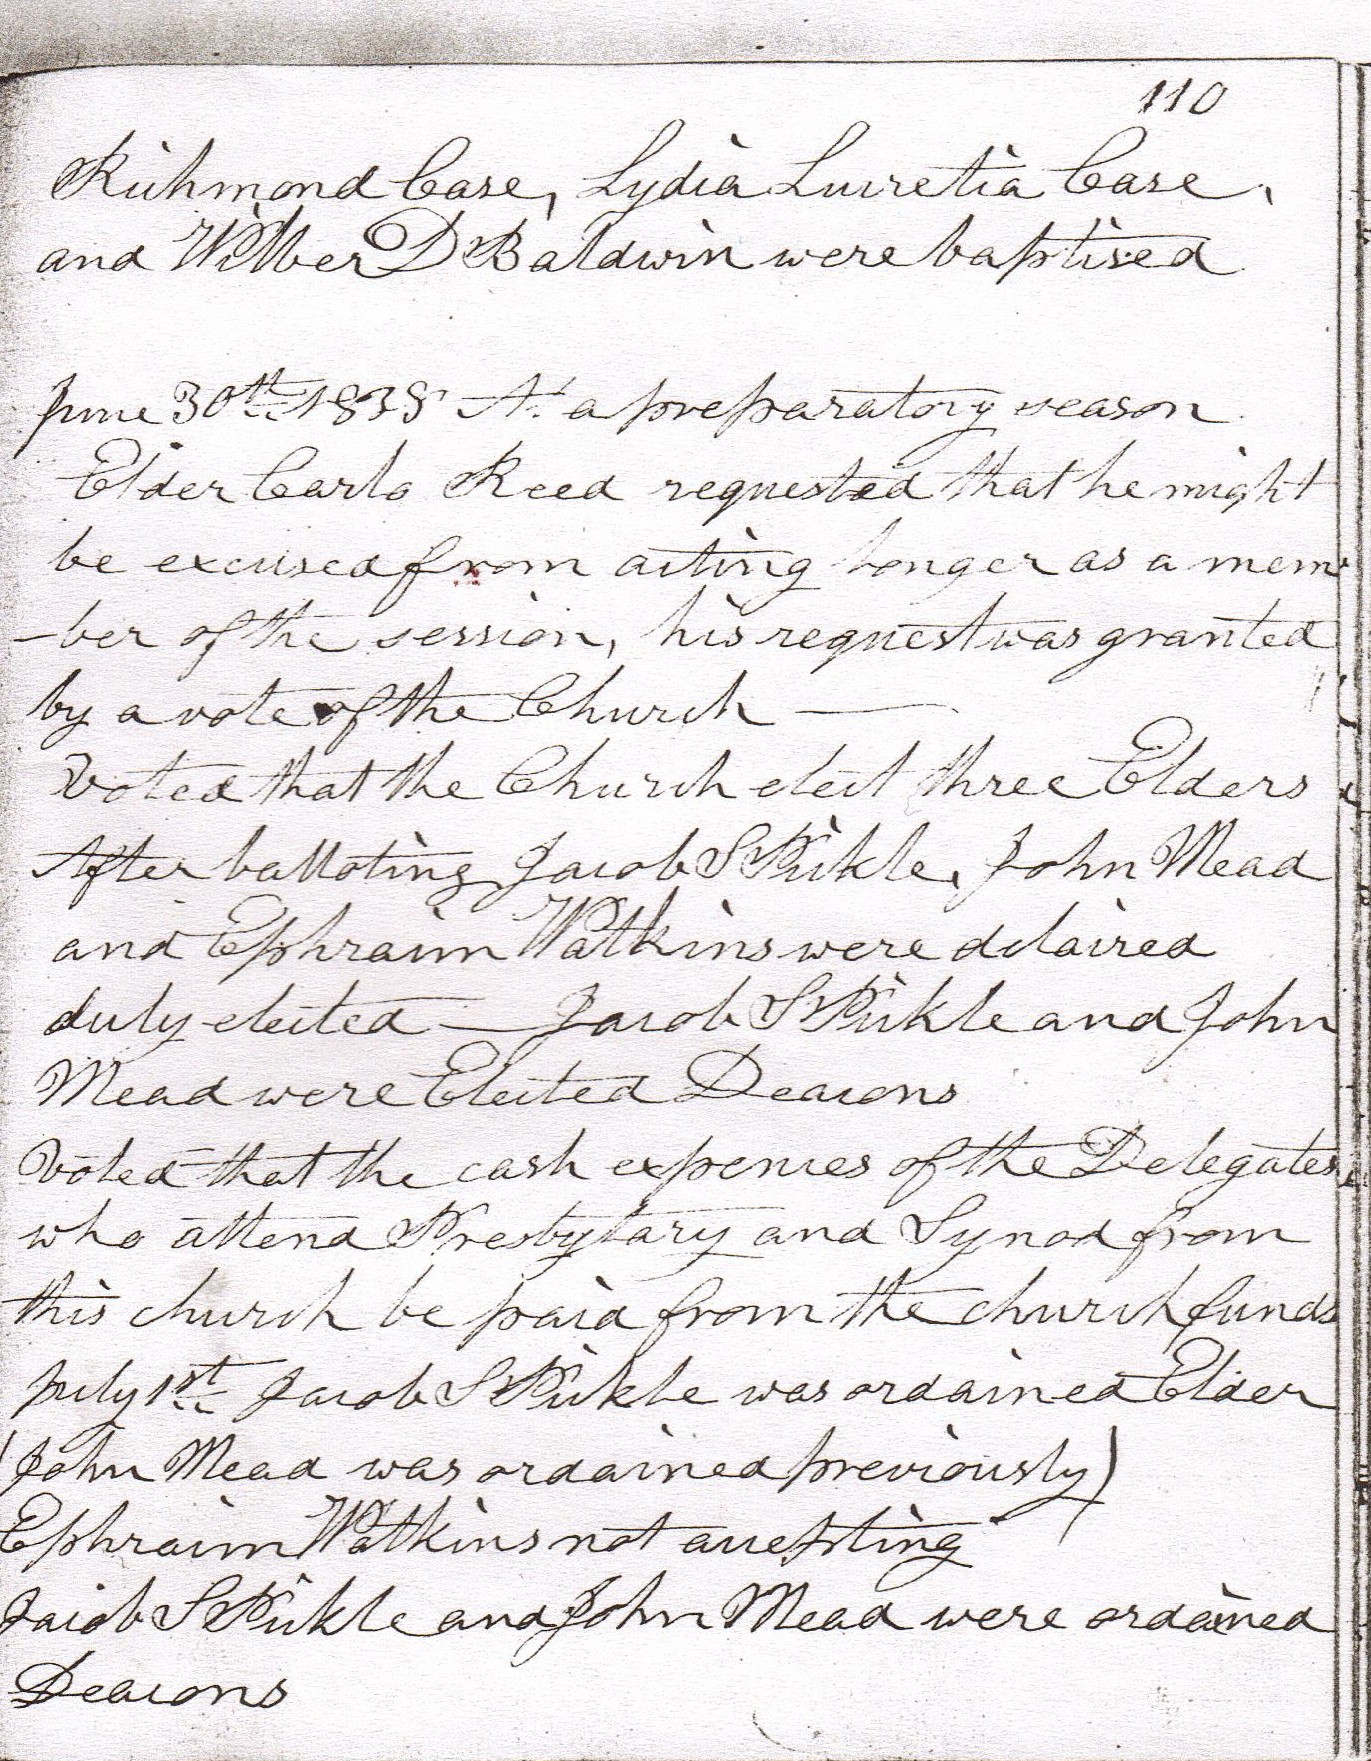 110
Richmond Case, Lydia Lucretia Case,
and Wilber D Baldwin were baptised
June 30th 1838 At a preparatory season
Elder Carlo Reed requested that he might
be excused from acting longer as a mem
-ber of the session, his request was granted
by a vote of the Church —
Voted that the Church elect three Elders
After balloting Jacob S Pickle, John Mead
and Ephraim Watkins were declaired
duly elected — Jacob S Pickle and John
Mead were Elected Deacons
Voted that the cash expences of the Delegates
who attend Presbytary and Synod from
this church be paid from the church funds
July 1st Jacob S Pickle was ordained Elder
(John Mead was ordained previously)
Ephraim Watkins not accepting
Jacob S Pickle and John Mead were ordained
Deacons